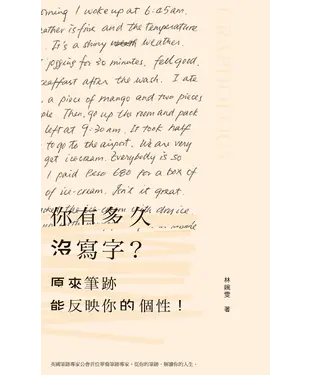 orning I woke up at 6.45am.
eather is fine and the temperature
. It's a shiny weather.
jogging for 30 minutes, feel good,
reakfast after the wash. I ate
a piece of mango and two pieces
ple. Then, go up the room and pack
left at 9-30am. It took half
to go to the airport. We are very
get ice cream. Everybody is so
I paid Peso 680 for a box of
of ice-cream. Isn't it great.
the ice-cream with dry ice
你有多久
沒寫字?
原來筆跡
能反映你的個性!
林婉雯 著
英國筆跡專家公會首位華裔筆跡專家,從你的筆跡,解讀你的人生。